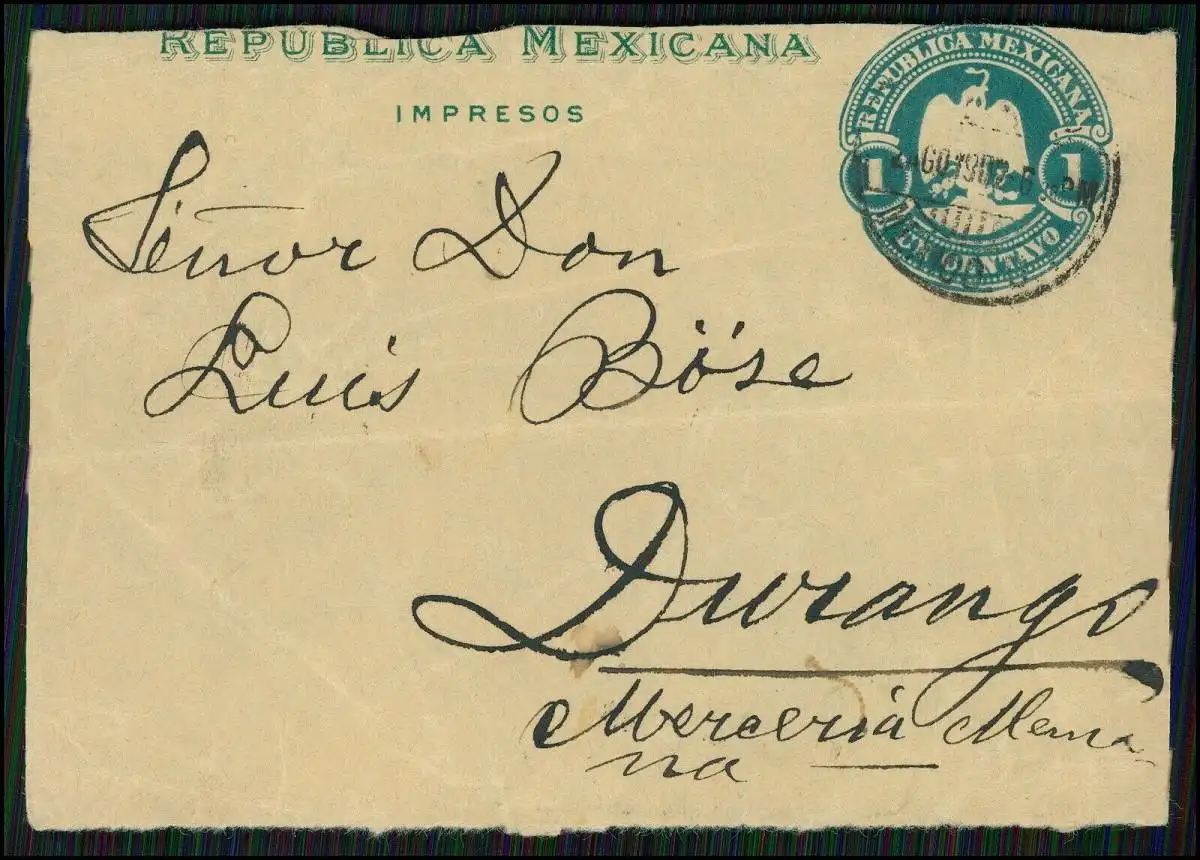 REPUBLICA MEXICANA
IMPRESOS
REPUBLICA MEXICANA
1 1
UN CENTAVO
AGO 1907
MEXICO
Señor Don
Luis Böse
Durango
Merceria Alema
na